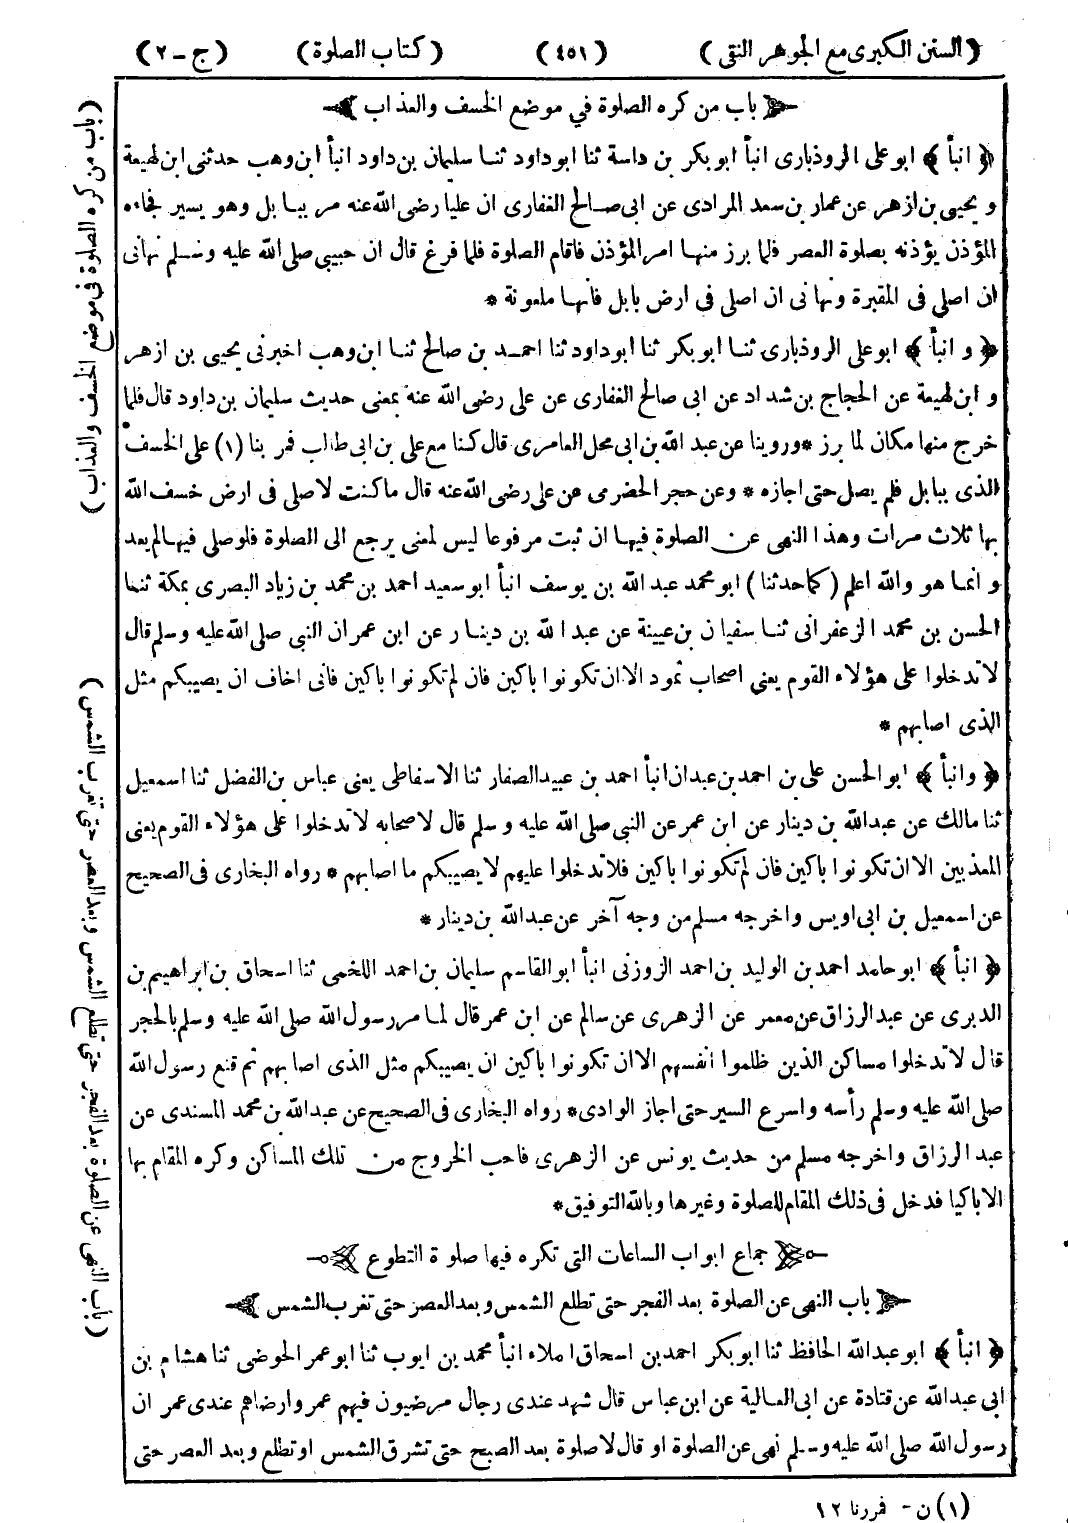 (السنن الكبرى مع الجوهر النقى) (٤٥١) (كتاب الصلوة) (ج - ٢)
باب من كره الصلوة في موضع الخسف والعذاب
﴿ انبأ ﴾ ابو على الروذبارى انبأ ابو بكر بن داسة ثنا ابو داود ثنا سليمان بن داود انبأ ابن وهب حدثنى ابن لهيعة
و يحيى بن ازهر عن عمار بن سعد المرادى عن ابى صالح الغفارى ان عليا رضى الله عنه مر ببابل وهو يسير فجاءه
المؤذن يؤذنه بصلوة العصر فلما برز منها امر المؤذن فاقام الصلوة فلما فرغ قال ان حبيبى صلى الله عليه وسلم نهانى
ان اصلى فى المقبرة ونهانى ان اصلى فى ارض بابل فانها ملعونة *
﴿ و انبأ ﴾ ابو على الروذبارى ثنا ابو بكر ثنا ابو داود ثنا احمد بن صالح ثنا ابن وهب اخبرنى يحيى بن ازهر
و ابن لهيعة عن الحجاج بن شداد عن ابى صالح الغفارى عن على رضى الله عنه بمعنى حديث سليمان بن داود قال فلما
خرج منها مكان لما برز * وروينا عن عبد الله بن ابى محل العامرى قال كنا مع على بن ابى طالب فمر بنا (١) على الخسف
الذى ببابل فلم يصل حتى اجازه * وعن حجر الحضرمى عن على رضى الله عنه قال ما كنت لاصلى فى ارض خسف الله
بها ثلاث مرات وهذا النهى عن الصلوة فيها ان ثبت مرفوعا ليس لمعنى يرجع الى الصلوة فلو صلى فيها لم يعد
و انما هو والله اعلم (كما حدثنا) ابو محمد عبد الله بن يوسف انبأ ابو سعيد احمد بن محمد بن زياد البصرى بمكة ثنا
الحسن بن محمد الزعفرانى ثنا سفيان بن عيينة عن عبد الله بن دينار عن ابن عمر ان النبى صلى الله عليه وسلم قال
لا تدخلوا على هؤلاء القوم يعنى اصحاب ثمود الا ان تكونوا باكين فان لم تكونوا باكين فانى اخاف ان يصيبكم مثل
الذى اصابهم *
﴿ وانبأ ﴾ ابو الحسن على بن احمد بن عبدان انبأ احمد بن عبيد الصفار ثنا الاسفاطى يعنى عباس بن الفضل ثنا اسمعيل
ثنا مالك عن عبد الله بن دينار عن ابن عمر عن النبى صلى الله عليه وسلم قال لاصحابه لا تدخلوا على هؤلاء القوم يعنى
المعذبين الا ان تكونوا باكين فان لم تكونوا باكين فلا تدخلوا عليهم لا يصيبكم ما اصابهم * رواه البخارى فى الصحيح
عن اسمعيل بن ابى اويس واخرجه مسلم من وجه آخر عن عبد الله بن دينار *
﴿ انبأ ﴾ ابو حامد احمد بن الوليد بن احمد الزوزنى انبأ ابو القاسم سليمان بن احمد اللخمى ثنا اسحاق بن ابراهيم بن
الدبرى عن عبد الرزاق عن معمر عن الزهرى عن سالم عن ابن عمر قال لما مر رسول الله صلى الله عليه وسلم بالحجر
قال لا تدخلوا مساكن الذين ظلموا انفسهم الا ان تكونوا باكين ان يصيبكم مثل الذى اصابهم ثم قنع رسول الله
صلى الله عليه وسلم رأسه واسرع السير حتى اجاز الوادى * رواه البخارى فى الصحيح عن عبد الله بن محمد المسندى عن
عبد الرزاق واخرجه مسلم من حديث يونس عن الزهرى فاحب الخروج من تلك المساكن وكره المقام بها
الا باكيا فدخل فى ذلك المقام للصلوة وغيرها وبالله التوفيق *
جماع ابواب الساعات التى تكره فيها صلوة التطوع
باب النهى عن الصلوة بعد الفجر حتى تطلع الشمس وبعد العصر حتى تغرب الشمس
﴿ انبأ ﴾ ابو عبد الله الحافظ ثنا ابو بكر احمد بن اسحاق املاء انبأ محمد بن ايوب ثنا ابو عمر الحوضى ثنا هشام بن
ابى عبد الله عن قتادة عن ابى العالية عن ابن عباس قال شهد عندى رجال مرضيون فيهم عمر وارضاهم عندى عمر ان
رسول الله صلى الله عليه وسلم نهى عن الصلوة او قال لا صلوة بعد الصبح حتى تشرق الشمس او تطلع وبعد العصر حتى
(١) ن - فمررنا ١٢
(باب من كره الصلوة فى موضع الخسف والعذاب)
(باب النهى عن الصلوة بعد الفجر حتى تطلع الشمس وبعد العصر حتى تغرب الشمس)